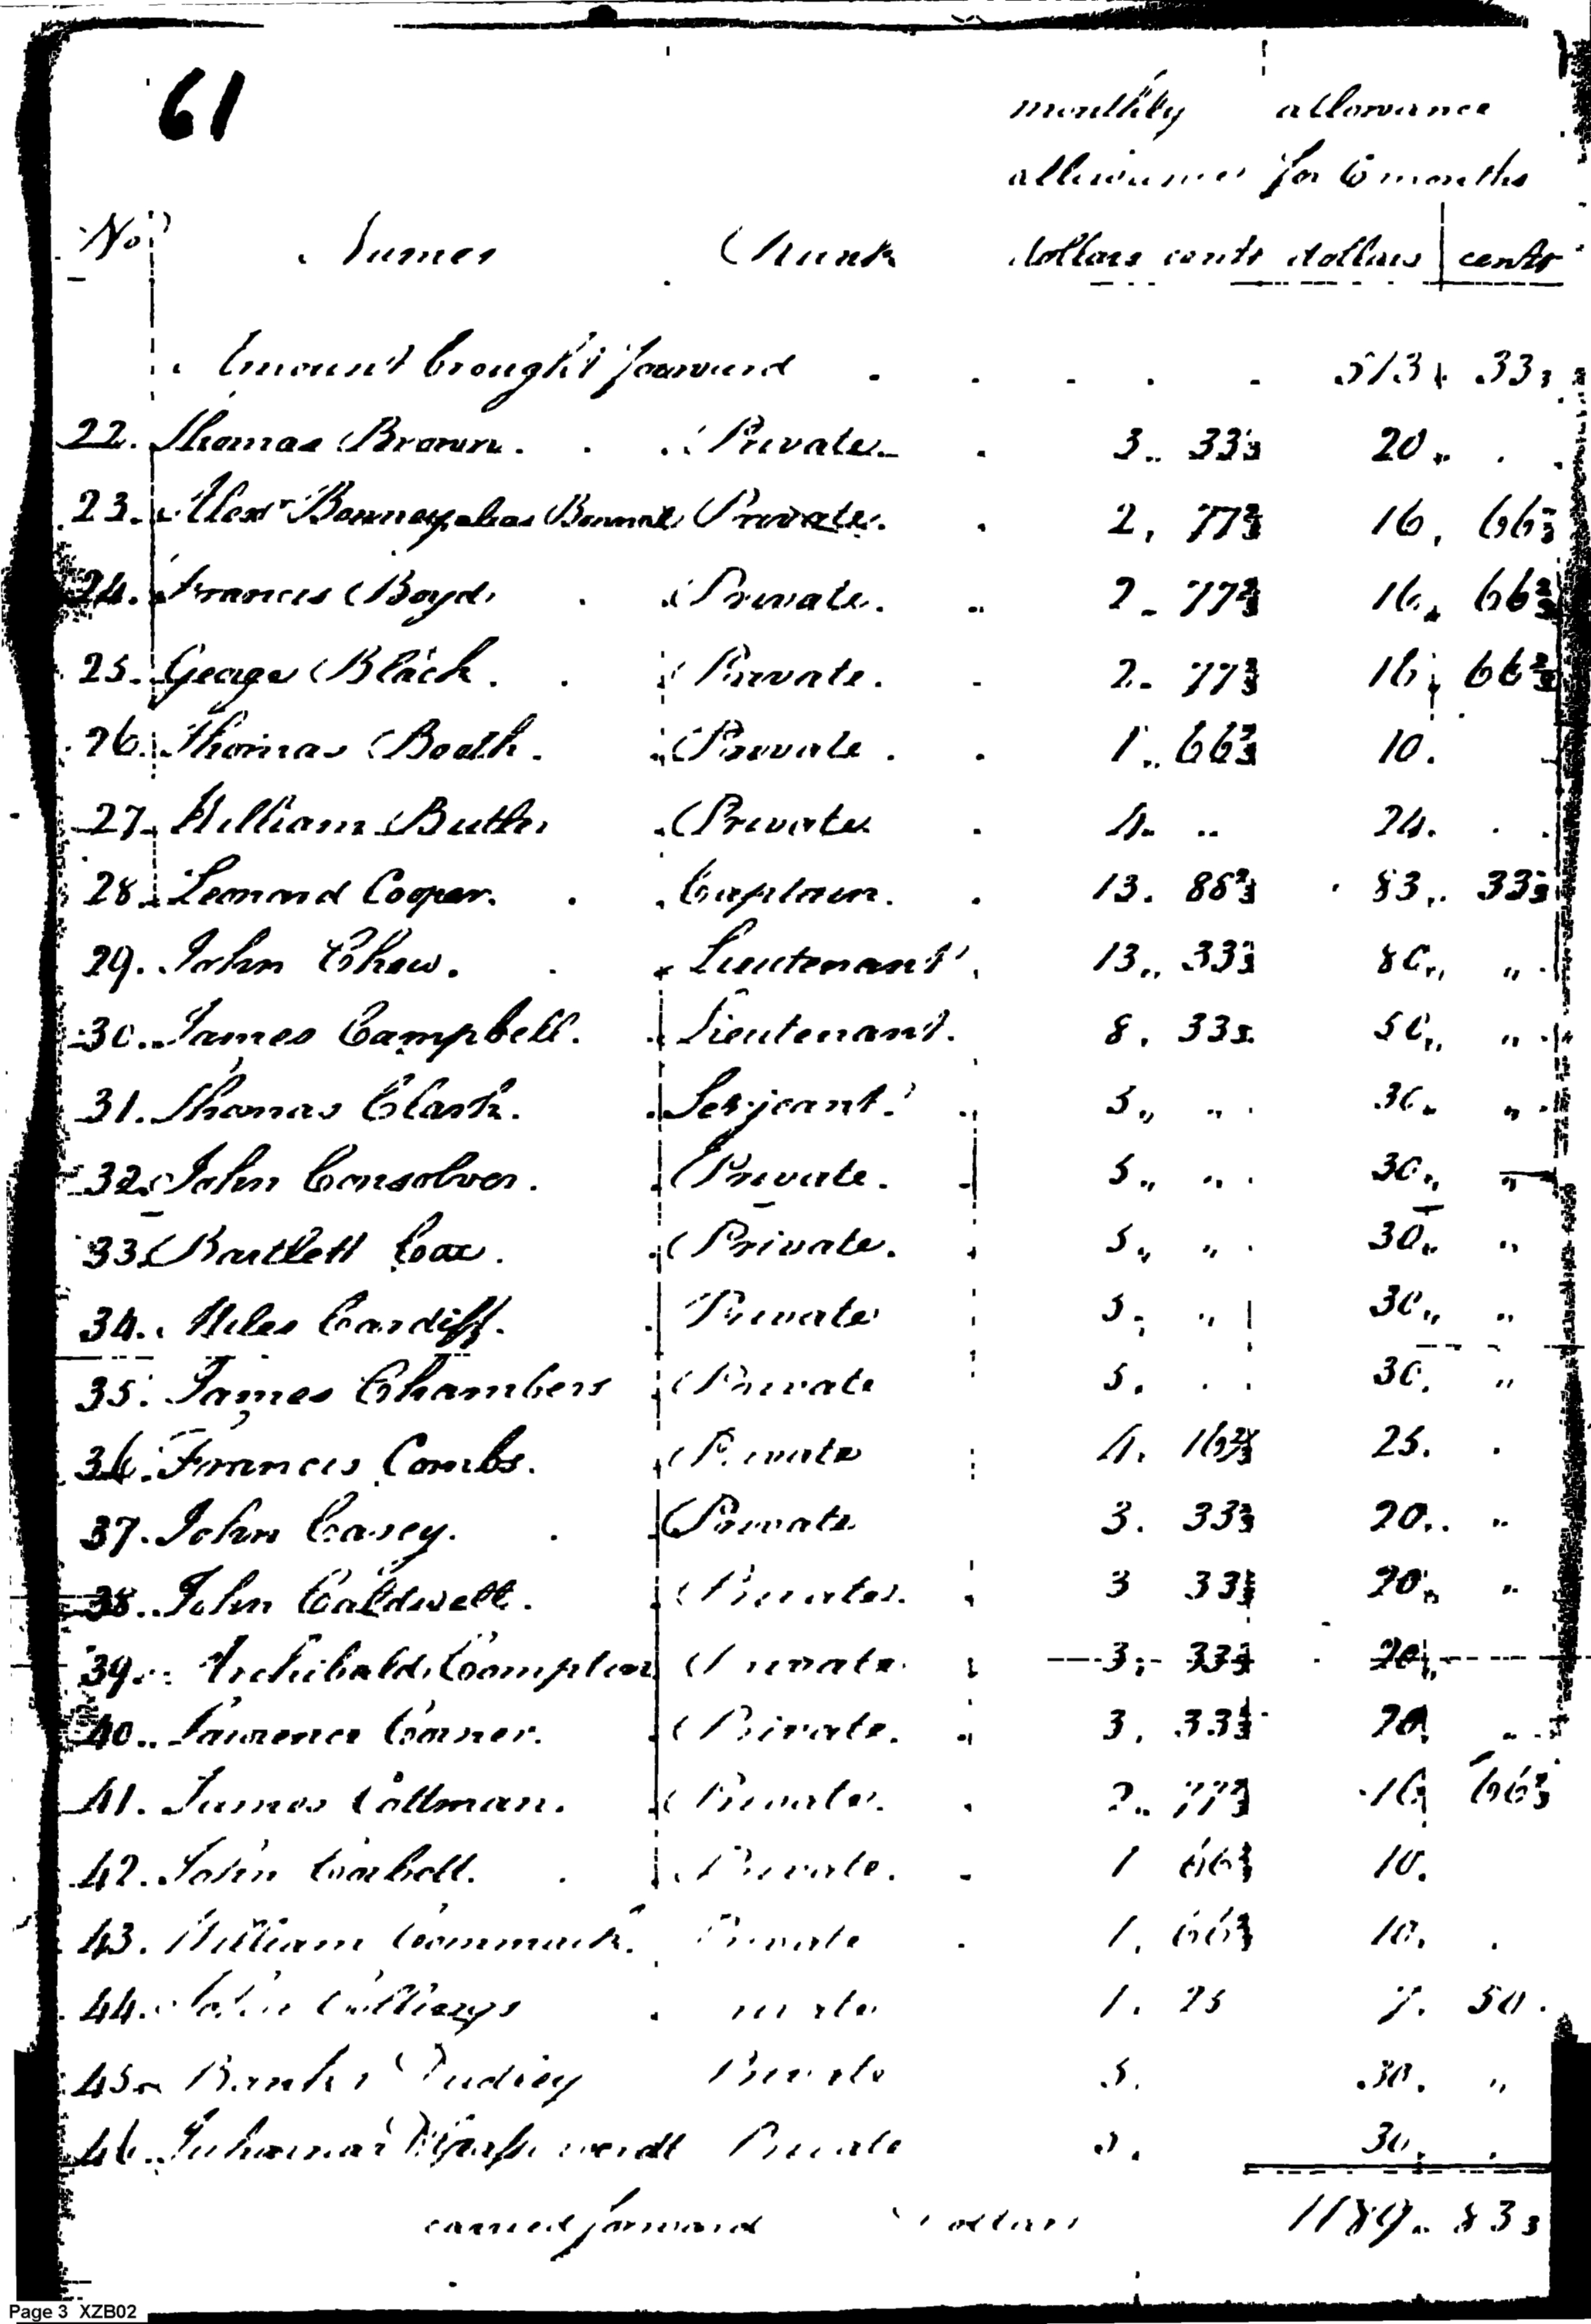 61
monthly allowance
allowance for 6 months
No Names Rank dollars cents dollars cents
Amount brought forward . . . . . 513. 33 1/3
22. Thomas Brown. . Private. . 3.. 33 1/3 20.. .
23. Alexr Bonney alias Bonnel Private. . 2. 77 2/3 16. 66 2/3
24. Francis Boyd . Private. .. 2. 77 2/3 16. 66 2/3
25. George Black. . Private. . 2. 77 2/3 16. 66 2/3
26. Thomas Booth. Private. . 1.. 66 2/3 10.
27. William Butler Private . 4. .. 24. . .
28. Leonard Cooper. . Captain. . 13. 88 2/3 83.. 33 1/3
29. John Chew. . Lieutenant. 13.. 33 1/3 80,, ,,
30. James Campbell. Lieutenant. 8. 33 1/3 50,, ,,
31. Thomas Clark. Serjeant. .. 5,, ,, 30,, ,,
32. John Consolver. Private. . 5,, ,, 30,, ,,
33. Bartlett Cox. Private. . 5,, ,, 30,, ,,
34. Miles Cardiff. Private 5,, ,, 30,, ,,
35. James Chambers Private 5. . . 30. ,,
36. Francis Combs. Private 4. 16 2/3 25. .
37. John Casey. . Private 3. 33 1/3 20.. ,,
38. John Caldwell. Private. . 3 33 1/3 20,, ,,
39. Archibald Compton Private. 3. 33 1/3 20,,
40.. Laurence Corner. Private. .. 3. 33 1/3 20. ..
41. James Coltman. Private. . 2.. 77 2/3 16. 66 2/3
42. John Corbett. . Private. . 1 66 2/3 10.
43. William Cammack. Private . 1. 66 2/3 10. .
44. John 1. 25 7. 50.
45. Banks Dudley Private 5. 30. ,,
46. Private 5. 30. .
carried forward dollars 1189.. 83 1/3
Page 3 XZB02